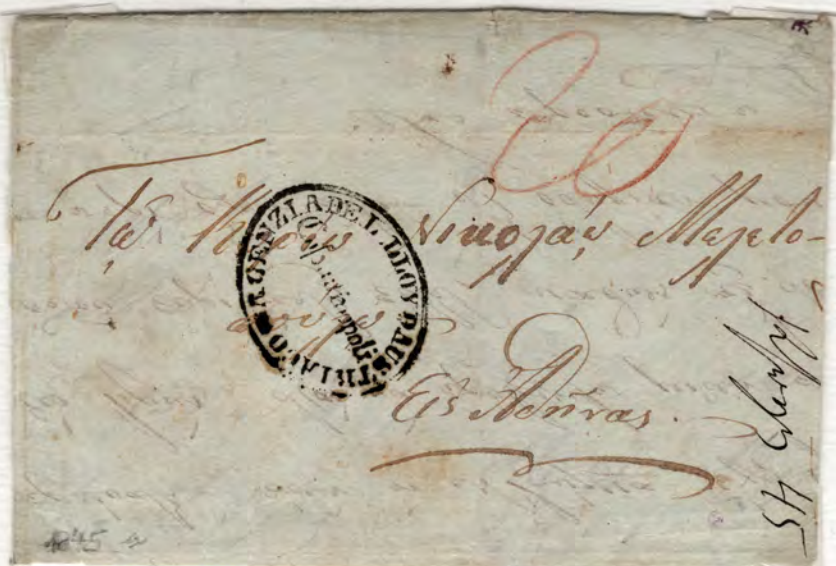 20
Τῷ Κυρίῳ Νικολάῳ Μελετο-
πούλῳ
AGENZIA DEL LLOYD AUSTRIACO
Constantinopoli
Εἰς Ἀθήνας.
1845